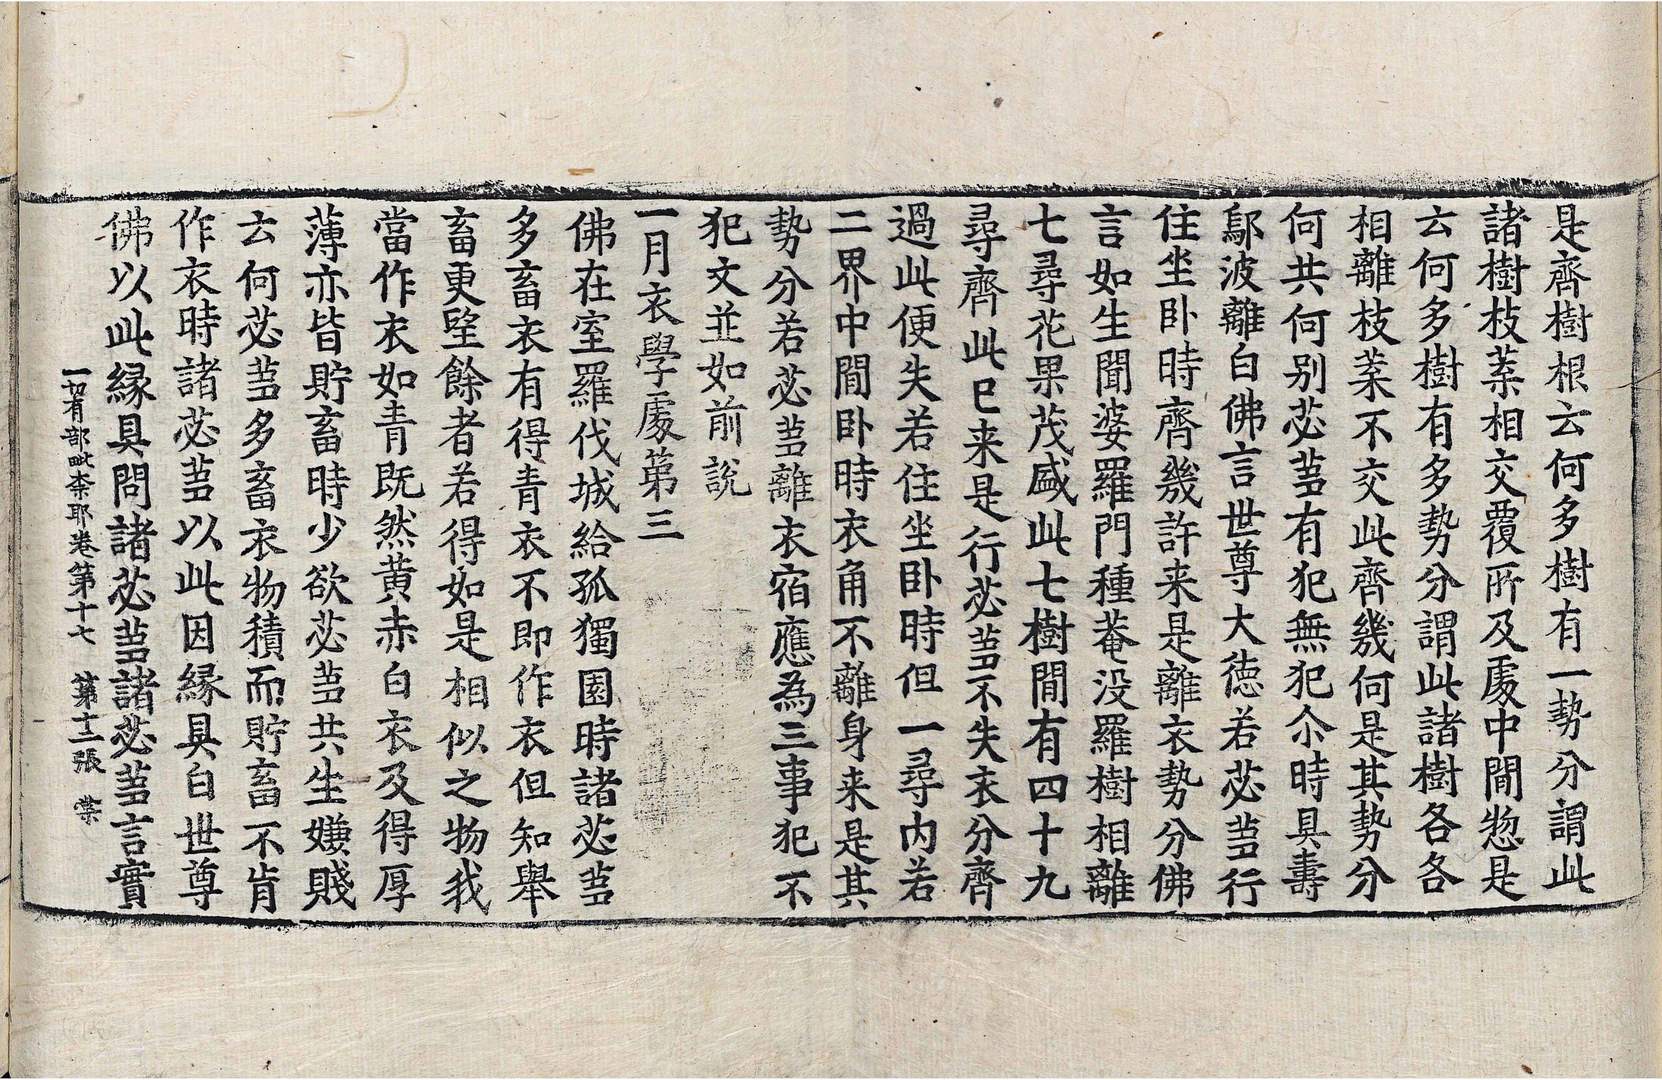 是齊樹根云何多樹有一勢分謂此
諸樹枝葉相交覆所及處中間惣是
云何多樹有多勢分謂此諸樹各各
相離枝葉不交此齊幾何是其勢分
何共何別苾芻有犯無犯尒時具壽
鄔波離白佛言世尊大德若苾芻行
住坐卧時齊幾許来是離衣勢分佛
言如生聞婆羅門種菴没羅樹相離
七尋花果茂盛此七樹間有四十九
尋齊此已来是行苾芻不失衣分齊
過此便失若住坐卧時但一尋內若
二界中間卧時衣角不離身来是其
勢分若苾芻離衣宿應為三事犯不
犯文並如前說
一月衣學處第三
佛在室羅伐城給孤獨園時諸苾芻
多畜衣有得青衣不即作衣但知舉
畜更望餘者若得如是相似之物我
當作衣如青既然黄赤白衣及得厚
薄亦皆貯畜時少欲苾芻共生嫌賤
云何苾芻多畜衣物積而貯畜不肯
作衣時諸苾芻以此因緣具白世尊
佛以此緣具問諸苾芻諸苾芻言實
一切有部毗奈耶卷第十七 第十二張 棠